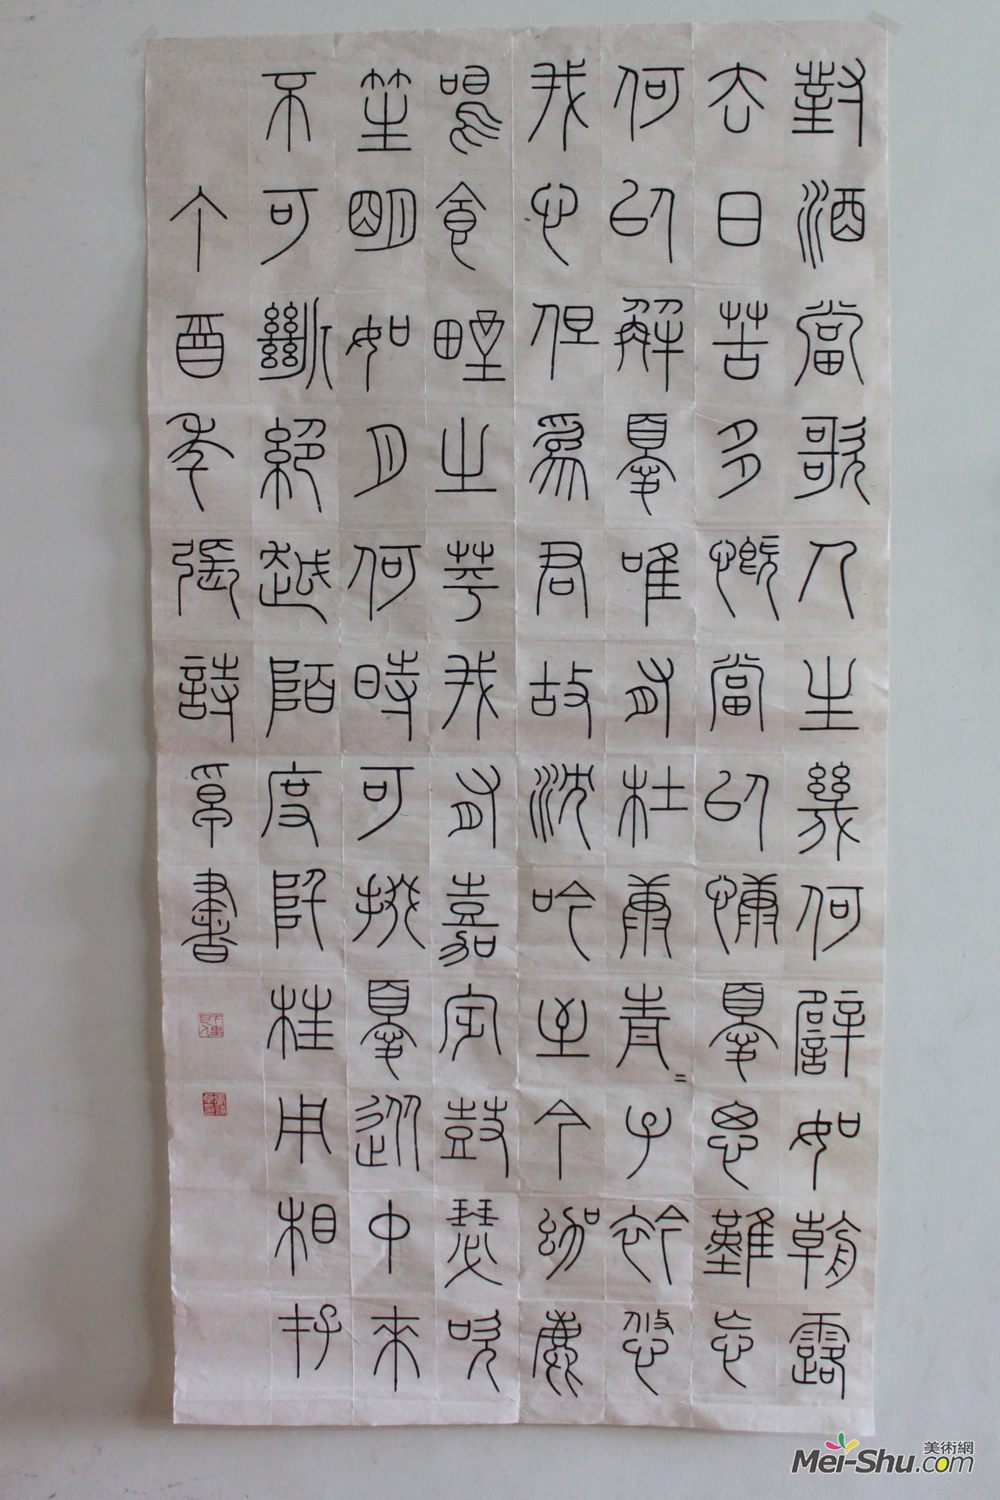 對酒當歌人生幾何譬如朝露
去日苦多慨當以慷憂思難忘
何以解憂唯有杜康青〻子衿悠
我心但爲君故沈吟至今呦鹿
鳴食野之苹我有嘉賓鼓瑟吹
笙明如月何時可掇憂從中來
不可斷絕越陌度阡枉用相存
丁酉年張詩書
美術網
Mei-Shu.com